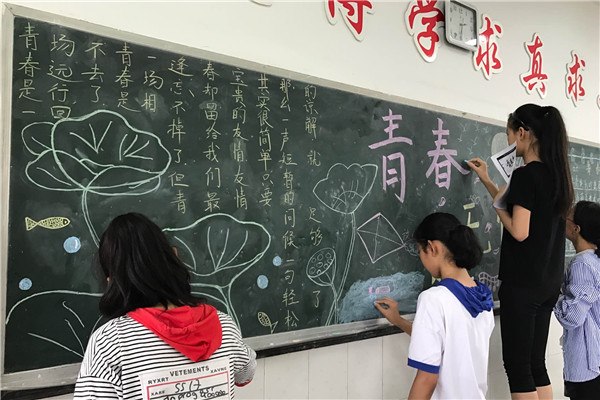 得学求真求
青春是一
场远行回
不去了
青春是
一场相
逢忘不掉了但青
春却留给我们最
宝贵的友情友情
其实很简单只要
那么一声短暂的问候一句轻松
的谅解就足够了
青春
VETEMENTS
SS17